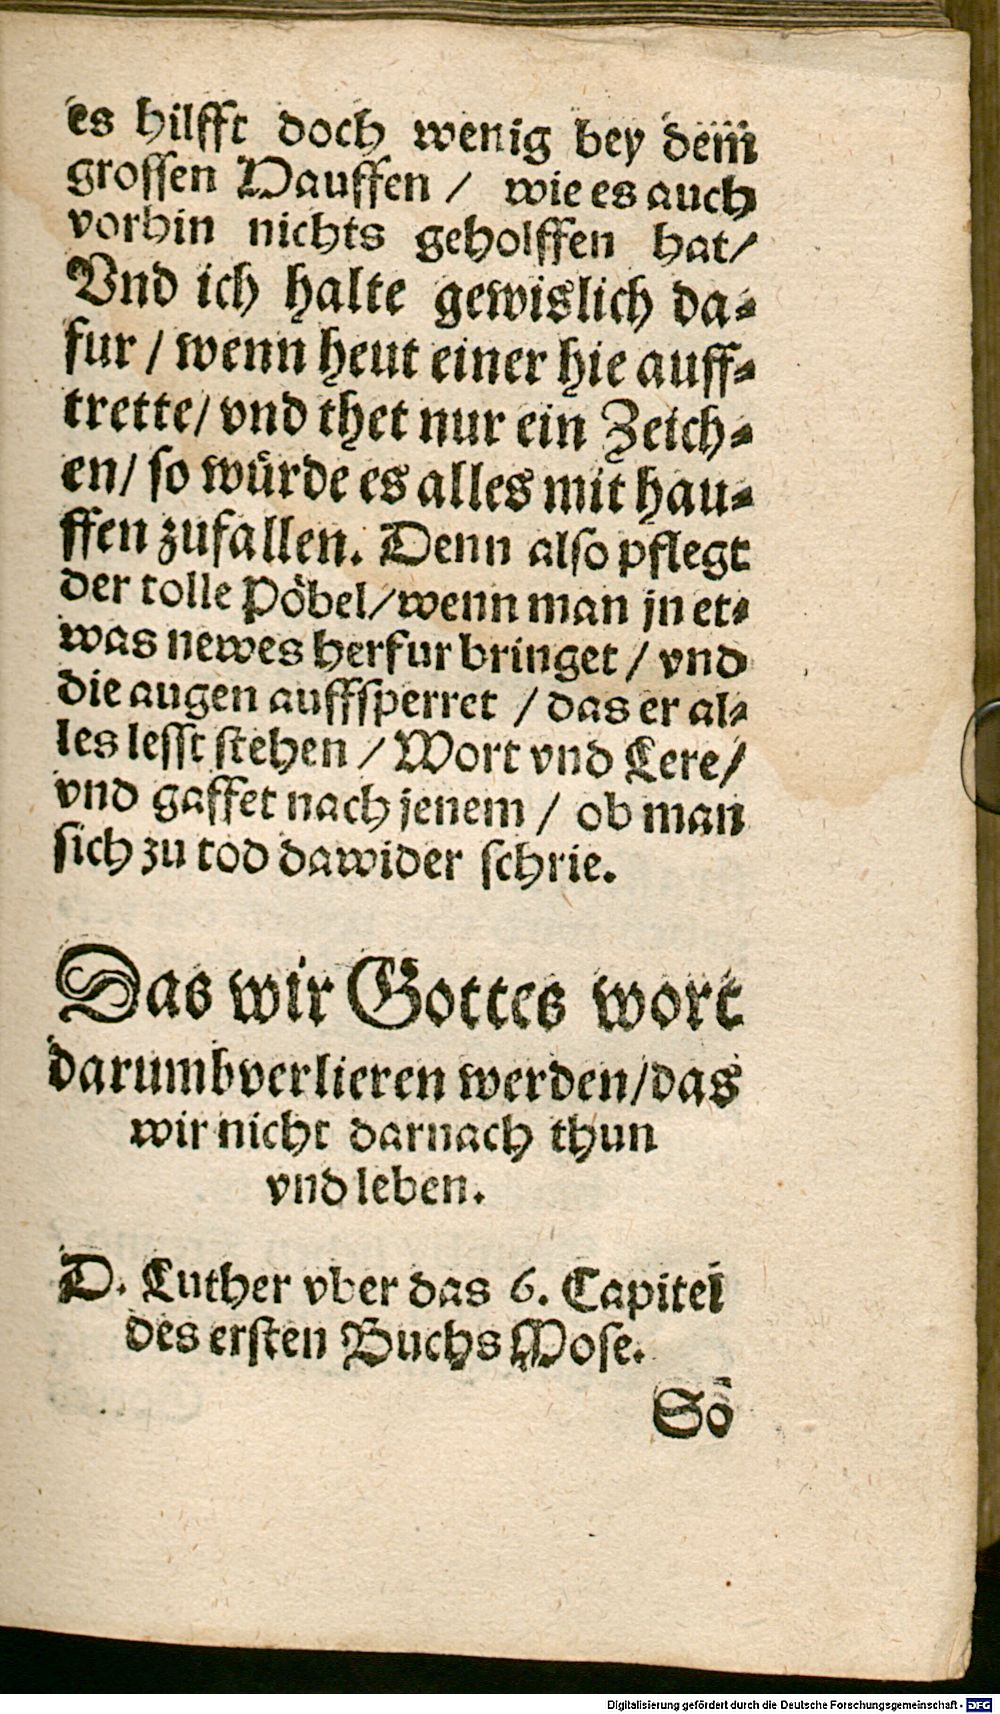 es hilfft doch wenig bey dem
grossen Hauffen / wie es auch
vorhin nichts geholffen hat/
Vnd ich halte gewislich da-
fur / wenn heut einer hie auff-
trette/ vnd thet nur ein Zeich-
en/ so würde es alles mit hau-
ffen zufallen. Denn also pflegt
der tolle Pöbel/ wenn man jn et-
was newes herfur bringet / vnd
die augen auffsperret / das er al-
les lesst stehen / Wort vnd Lere/
vnd gaffet nach jenem / ob man
sich zu tod dawider schrie.
Das wir Gottes wort
darumb verlieren werden/das
wir nicht darnach thun
vnd leben.
D. Luther vber das 6. Capitel
des ersten Buchs Mose.
So
Digitalisierung gefördert durch die Deutsche Forschungsgemeinschaft - DFG